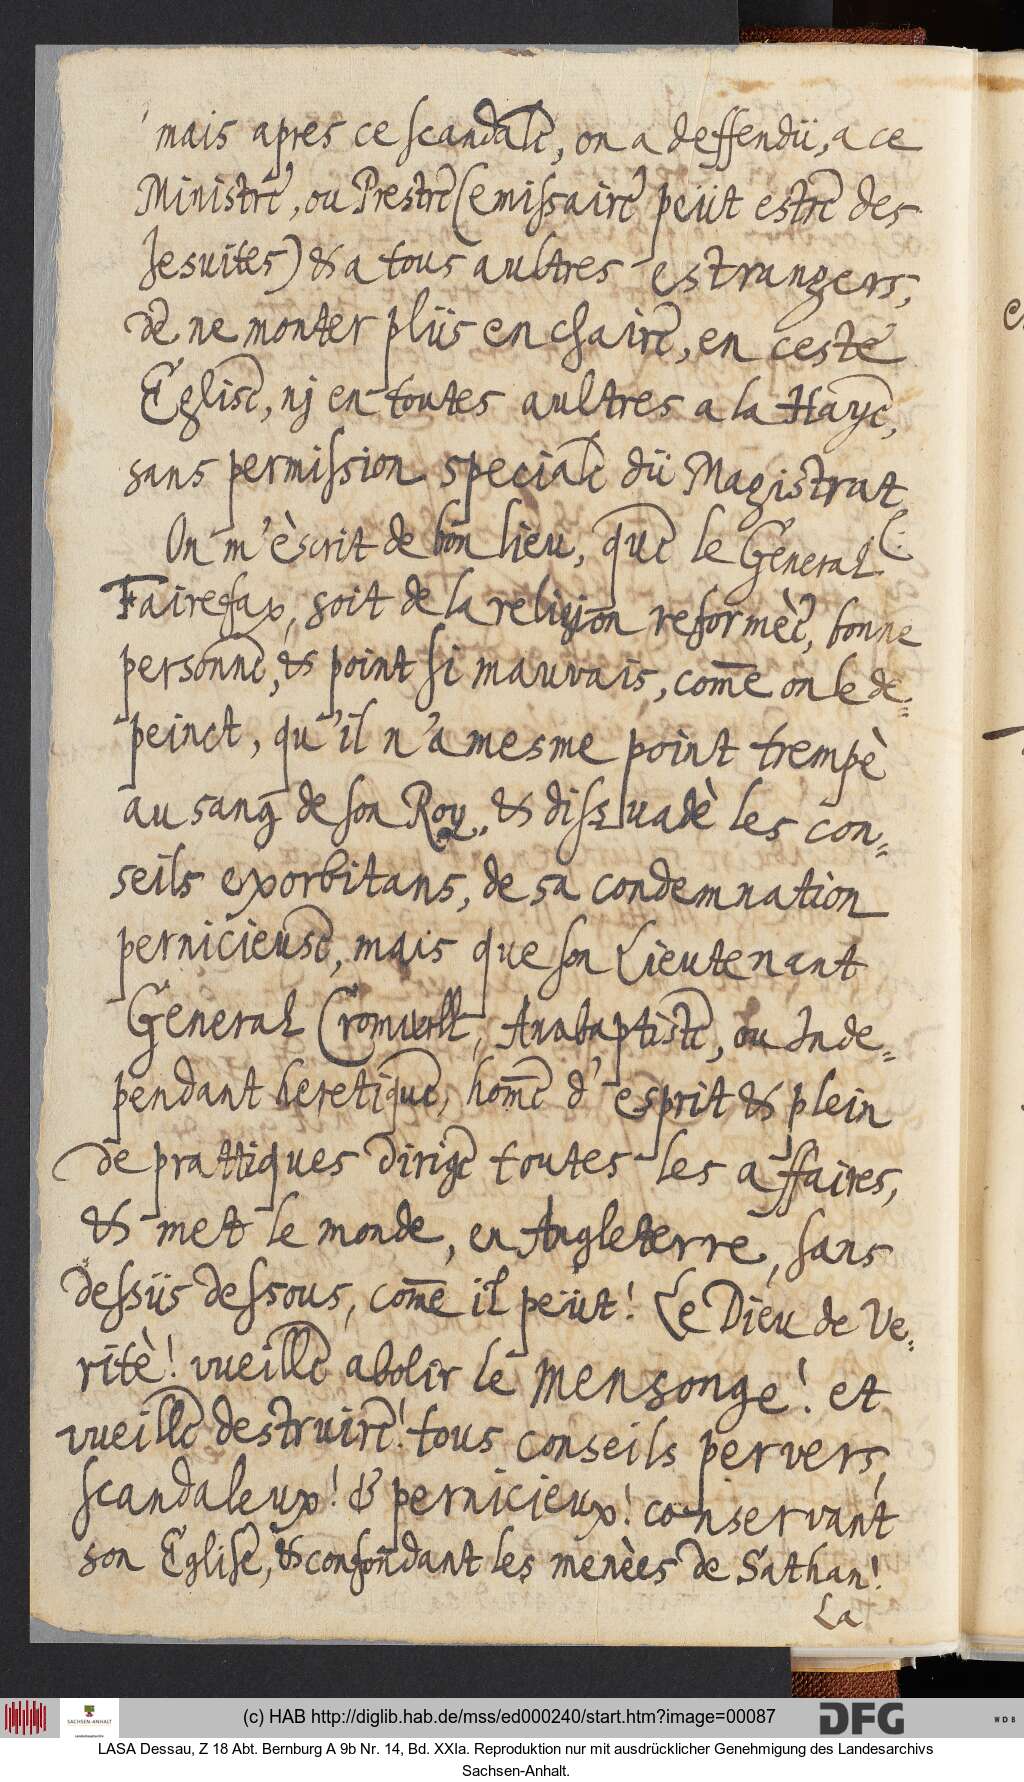 mais apres ce scandale, on a deffendü, a ce
Ministre, ou Prestre (emissaire peüt estre des
Jesuites) & a tous aultres estrangers,
de ne monter plüs en chaire, en ceste
Eglise, nj en toutes aultres a la Haye,
sans permission speciale dü Magistrat
On m'èscrit de bon lieu, que le General
Fairefax, soit de la religion reformèe, bonne
personne, & point si mauvais, com̄e on le de⸗
peinct, qu'il n'a mesme point trempè
au sang de son Roy, & dissuadè les con⸗
seils exorbitans, de sa condemnation
pernicieuse, mais que son Lieutenant
General Cromwell, Anabaptiste, ou Inde⸗
pendant heretique, hom̄e d'esprit & plein
de prattiques dirige toutes les affaires,
& met le monde, en Angleterre, sans
dessüs dessous, com̄e il peüt! Le Dieu de Ve⸗
ritè! vueille abolir le mensonge! et
vueille destruire! tous conseils pervers,
scandaleux! & pernicieux! conservant
son Eglise, & confondant les menèes de Sathan!
La
(c) HAB http://diglib.hab.de/mss/ed000240/start.htm?image=00087
SACHSEN-ANHALT
DFG
WDB
LASA Dessau, Z 18 Abt. Bernburg A 9b Nr. 14, Bd. XXIa. Reproduktion nur mit ausdrücklicher Genehmigung des Landesarchivs
Sachsen-Anhalt.